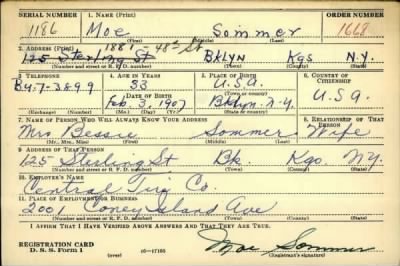 SERIAL NUMBER 1. NAME (Print) ORDER NUMBER
1186 Moe Sommer 1668
(First) (Middle) (Last)
1881 - 48th St
2. ADDRESS (Print)
125 Sterling St BKLYN Kgs N.Y.
(Number and street or R. F. D. number) (Town) (County) (State)
3. TELEPHONE 4. AGE IN YEARS 5. PLACE OF BIRTH 6. COUNTRY OF CITIZENSHIP
33 U.S.A.
DATE OF BIRTH
Bu-7-3899 Feb. 3, 1907 Bklyn. N.Y. U.S.A.
(Exchange) (Number) (Mo.) (Day) (Yr.) (State or country)
7. NAME OF PERSON WHO WILL ALWAYS KNOW YOUR ADDRESS 8. RELATIONSHIP OF THAT PERSON
Mrs Bessie Sommer Wife
(Mr., Mrs., Miss) (First) (Middle) (Last)
9. ADDRESS OF THAT PERSON
125 Sterling St Bk. Kgs. N.Y.
(Number and street or R. F. D. number) (Town) (County) (State)
10. EMPLOYER'S NAME
Central Tire Co.
11. PLACE OF EMPLOYMENT OR BUSINESS
2001 Coney Island Ave
(Number and street or R. F. D. number) (Town) (County) (State)
I AFFIRM THAT I HAVE VERIFIED ABOVE ANSWERS AND THAT THEY ARE TRUE.
REGISTRATION CARD
D. S. S. Form 1 (over) 16-17105 Moe Sommer
(Registrant's signature)